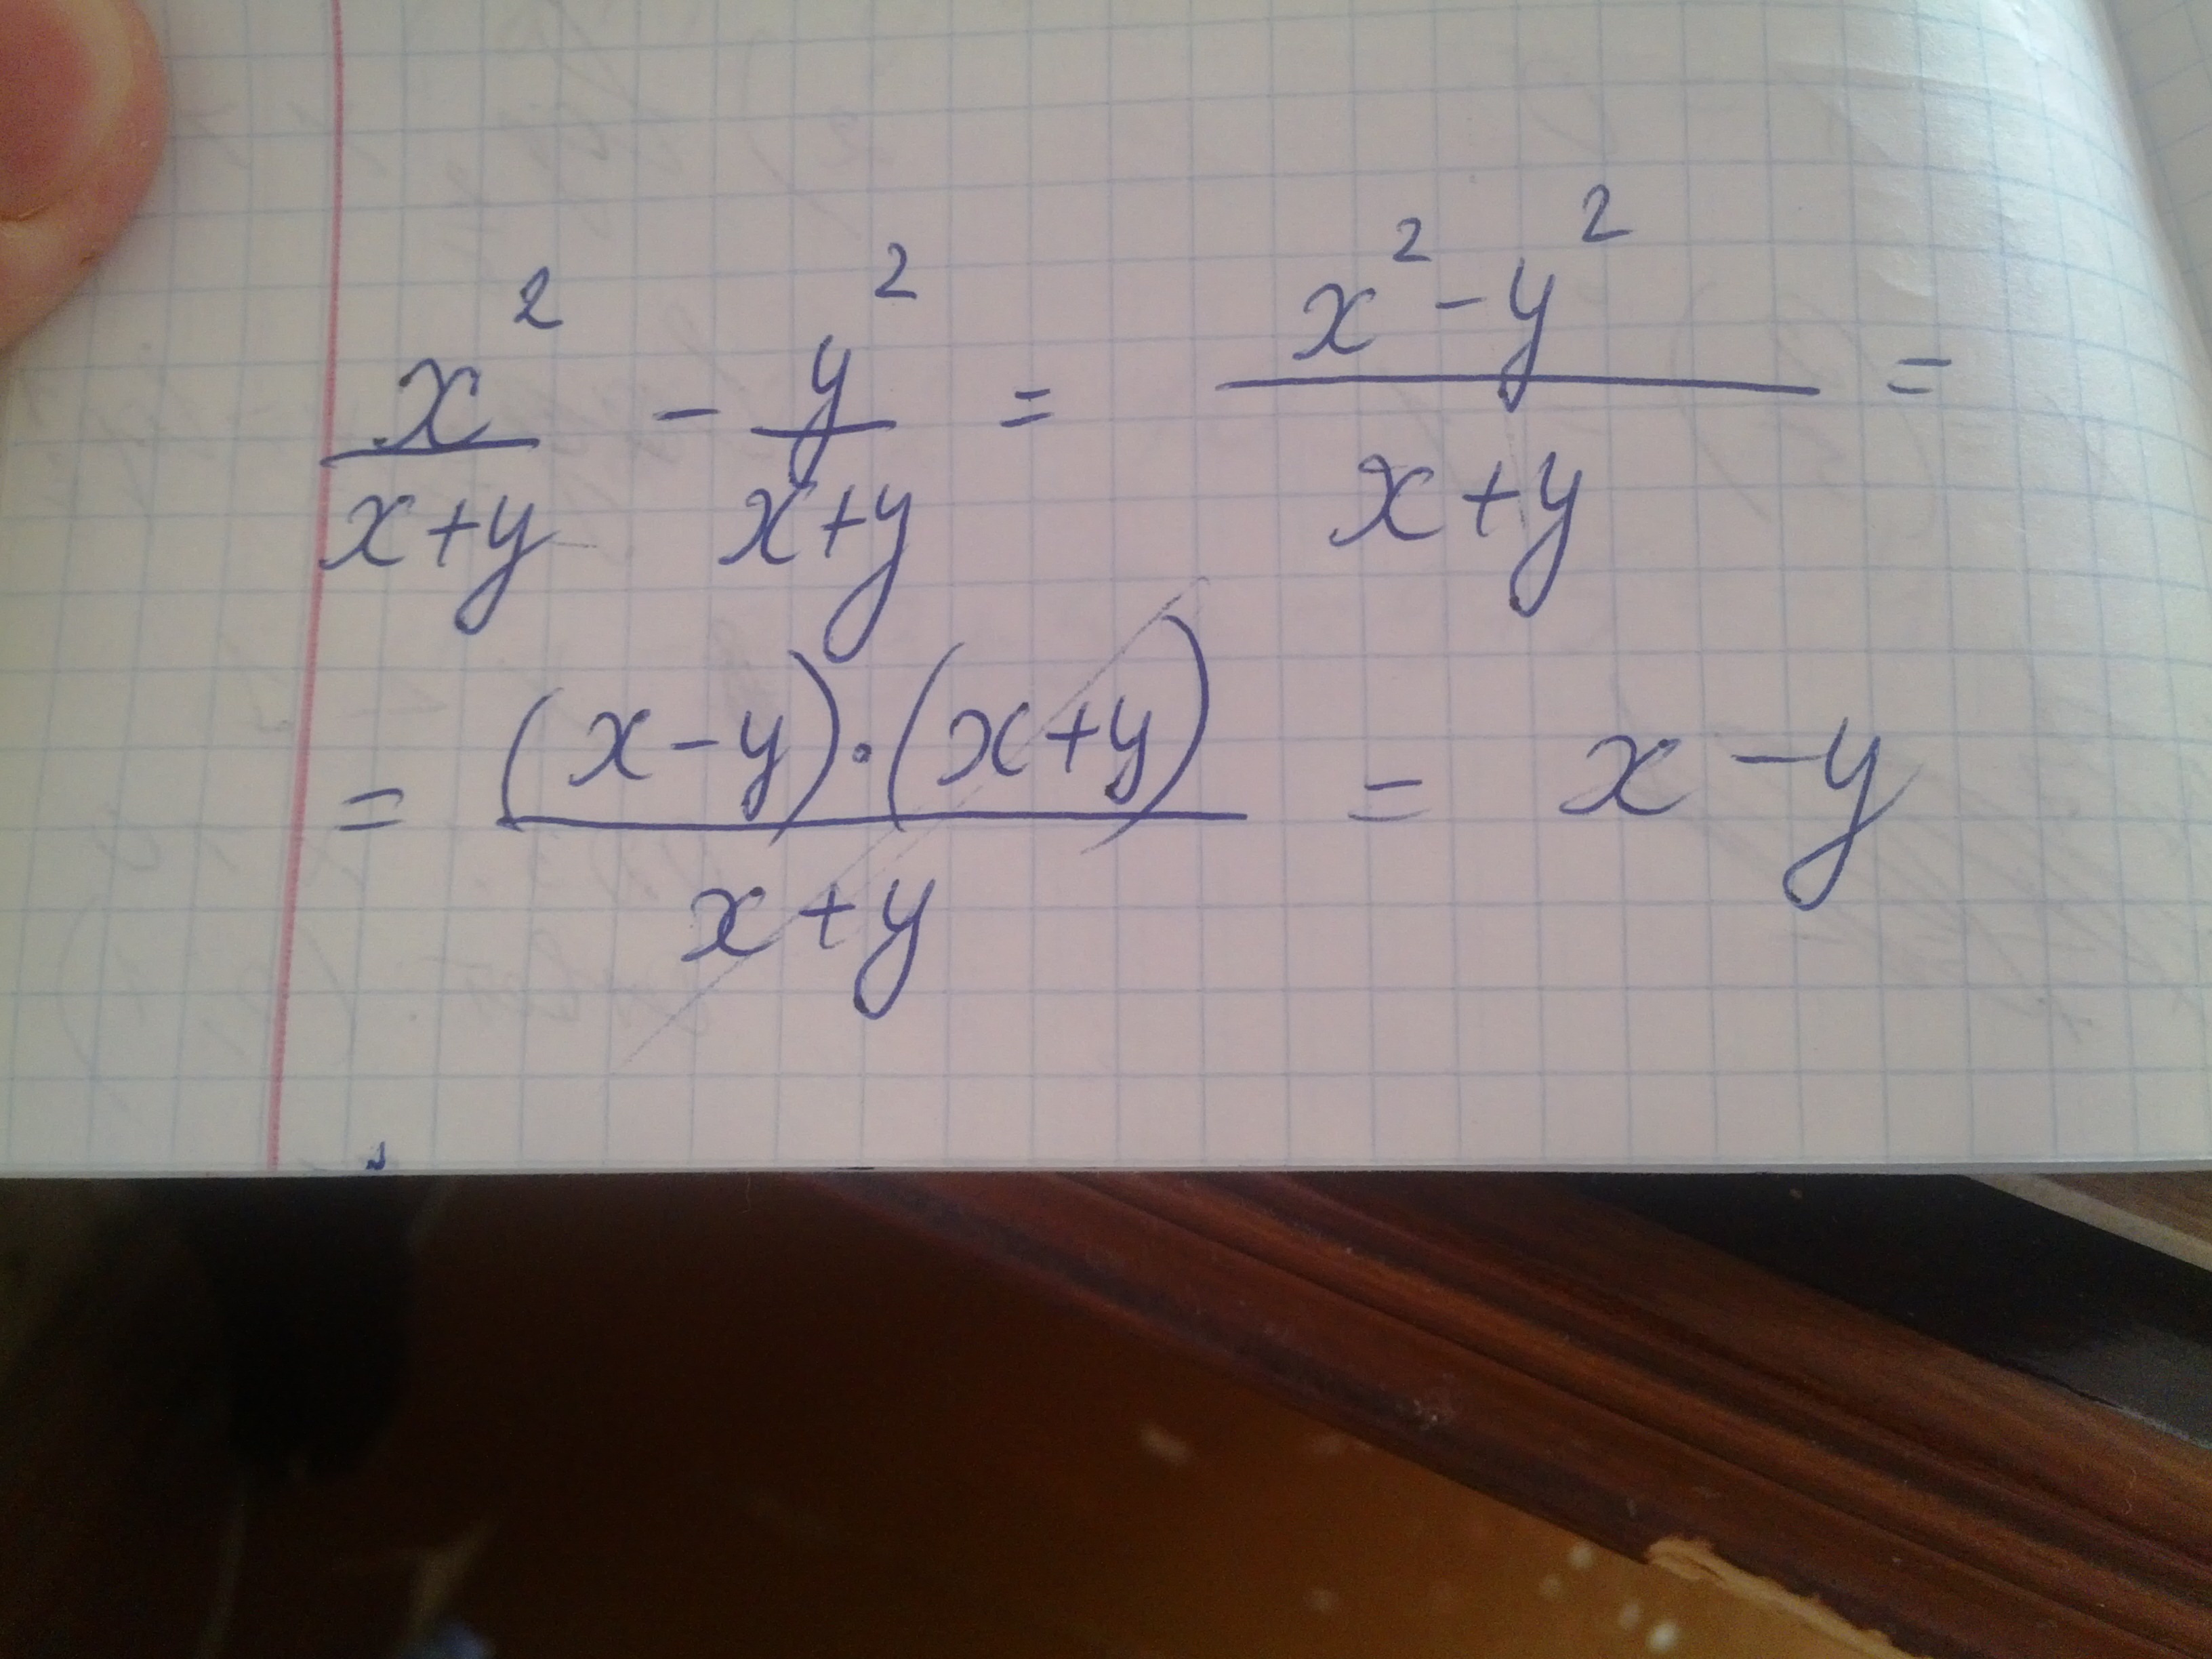 x²/(x+y) - y²/(x+y) = (x²-y²)/(x+y) =
= ((x-y)·(x+y))/(x+y) = x-y